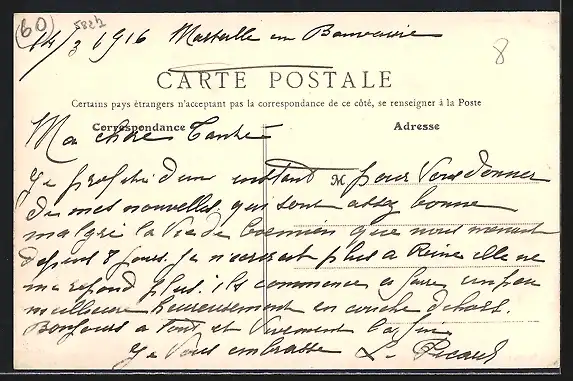 (60) 5822
14/3 1916 Marseille en Beauvaisis
8
CARTE POSTALE
Certains pays étrangers n'acceptant pas la correspondance de ce côté, se renseigner à la Poste
Correspondance
Adresse
M
Ma chère Tante
Je profite d'un instant pour Vous donner
de mes nouvelles qui sont assez bonne
malgré la Vie de que nous menont
depuis 8 jours. Je n'écrirai plus à Reine elle ne
me repond plus. ils commence a faire un peu
meilleure heureusement en couche dehors.
Bonjours a tous et Vivement la fin
Je Vous embrasse L. Picard